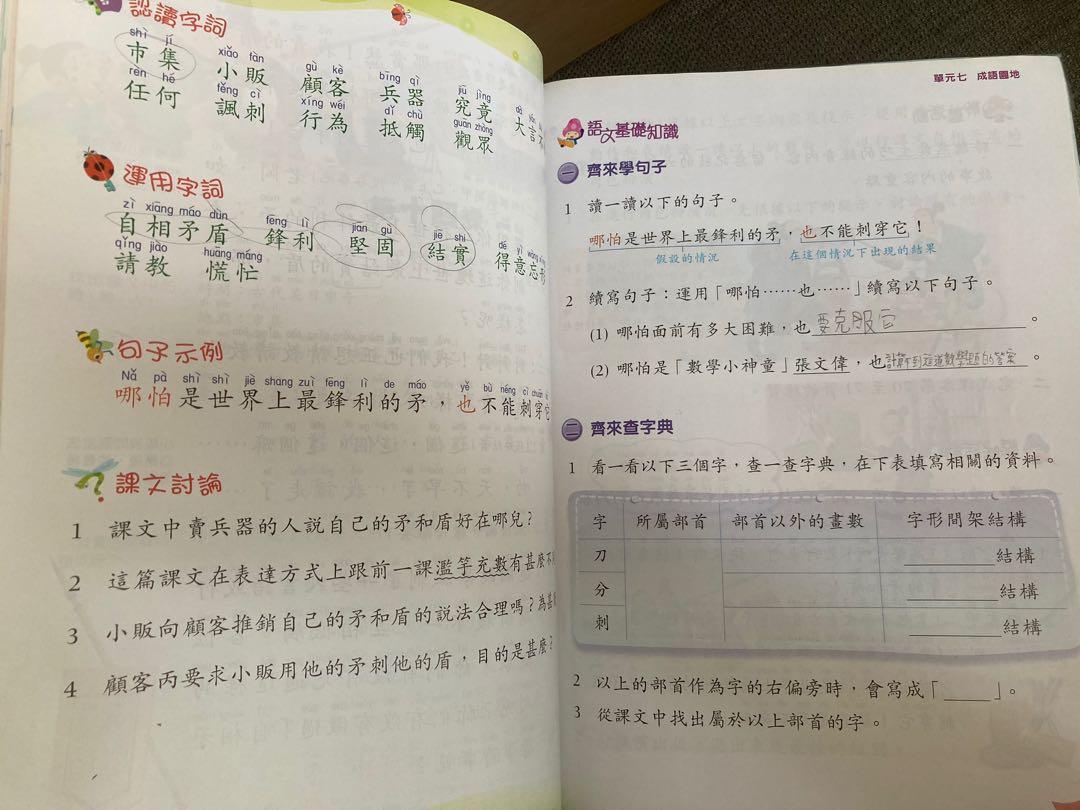 認讀字詞
shì jí
市集
xiǎo fàn
小販
gù kè
顧客
bīng qì
兵器
jiū jìng
究竟
大言不
rèn hé
任何
fěng cì
諷刺
xíng wéi
行為
dǐ chù
抵觸
guān zhòng
觀眾
運用字詞
zì xiāng máo dùn
自相矛盾
fēng lì
鋒利
jiān gù
堅固
jiē shi
結實
dé yì wàng
得意忘形
qǐng jiào
請教
huāng máng
慌忙
句子示例
Nǎ pà shì shì jiè shang zuì fēng lì de máo yě bù néng cì chuān
哪怕是世界上最鋒利的矛，也不能刺穿它
課文討論
1 課文中賣兵器的人說自己的矛和盾好在哪兒？
2 這篇課文在表達方式上跟前一課濫竽充數有甚麼不
3 小販向顧客推銷自己的矛和盾的說法合理嗎？為甚
4 顧客丙要求小販用他的矛刺他的盾，目的是甚麼？
單元七 成語園地
語文基礎知識
一 齊來學句子
1 讀一讀以下的句子。
哪怕是世界上最鋒利的矛，也不能刺穿它！
假設的情況 在這個情況下出現的結果
2 續寫句子：運用「哪怕……也……」續寫以下句子。
(1) 哪怕面前有多大困難，也要克服它。
(2) 哪怕是「數學小神童」張文偉，也計算不到這道數學題的答案。
二 齊來查字典
1 看一看以下三個字，查一查字典，在下表填寫相關的資料。
字 所屬部首 部首以外的畫數 字形間架結構
刀 ______結構
分 ______結構
刺 ______結構
2 以上的部首作為字的右偏旁時，會寫成「____」。
3 從課文中找出屬於以上部首的字。